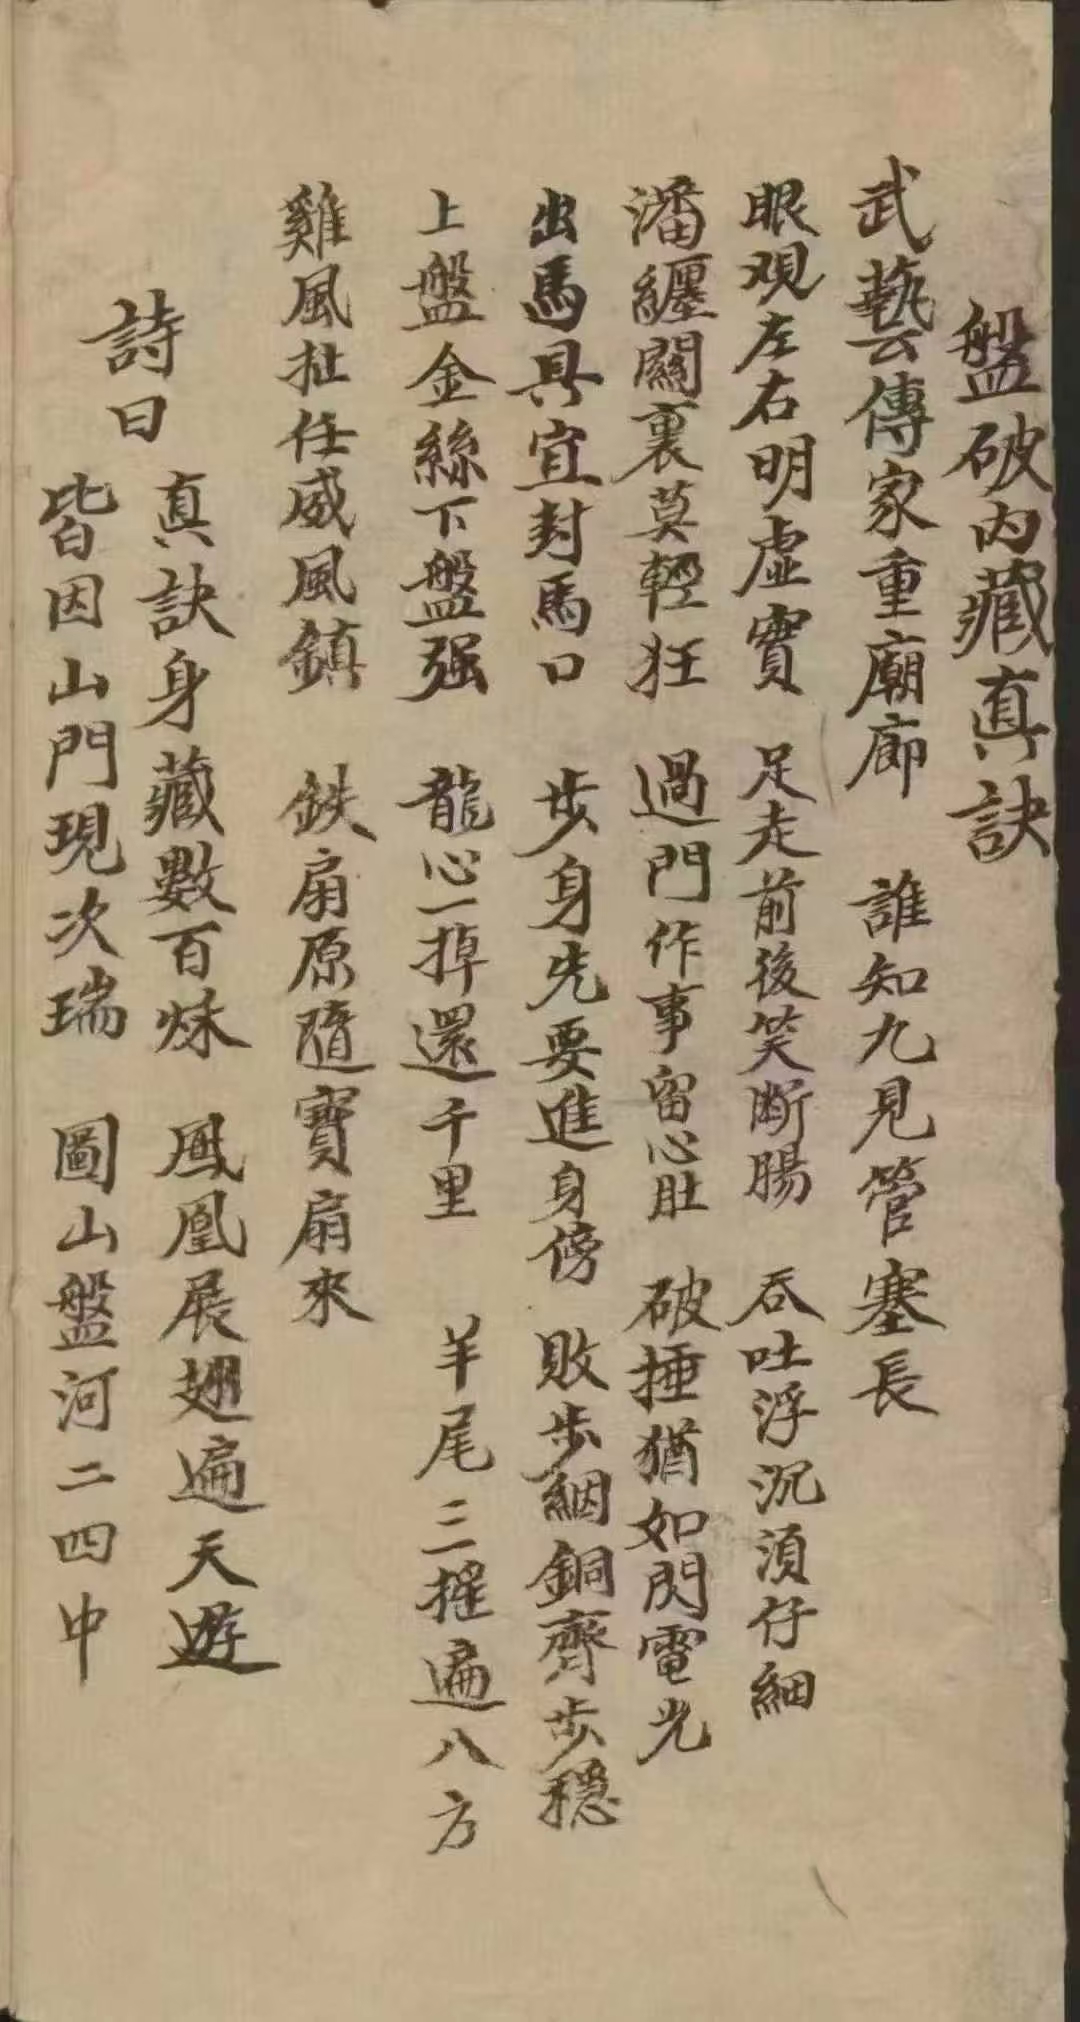 盤破內藏真訣
武藝傳家重廟廊 誰知九見管塞長
眼观左右明虛實 足走前後笑断腸 吞吐浮沉須仔細
潘纏闗裏莫輕狂 過門作事留心肚 破捶猶如閃電光
出馬具宜封馬口 步身先要進身傍 敗步絪銅齊步穩
上盤金絲下盤强 龍心一掉還千里 羊尾三摇遍八方
雞風扯任威風鎮 鉄扇原隨寶扇來
詩曰
真訣身藏數百烌 鳳凰展翅遍天遊
皆因山門現次瑞 圖山盤河二四中